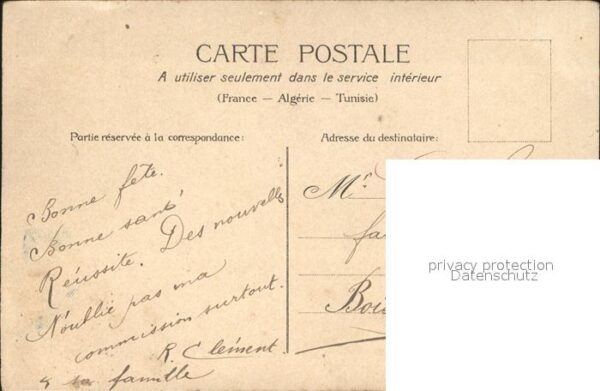 CARTE POSTALE
A utiliser seulement dans le service intérieur
(France — Algérie — Tunisie)
Partie réservée à la correspondance:
Adresse du destinataire:
Bonne fête.
Bonne santé
Réussite. Des nouvelles
N'oublie pas ma
commission surtout.
R. Clément.
& sa famille
Mr.
fa
Boi
privacy protection
Datenschutz